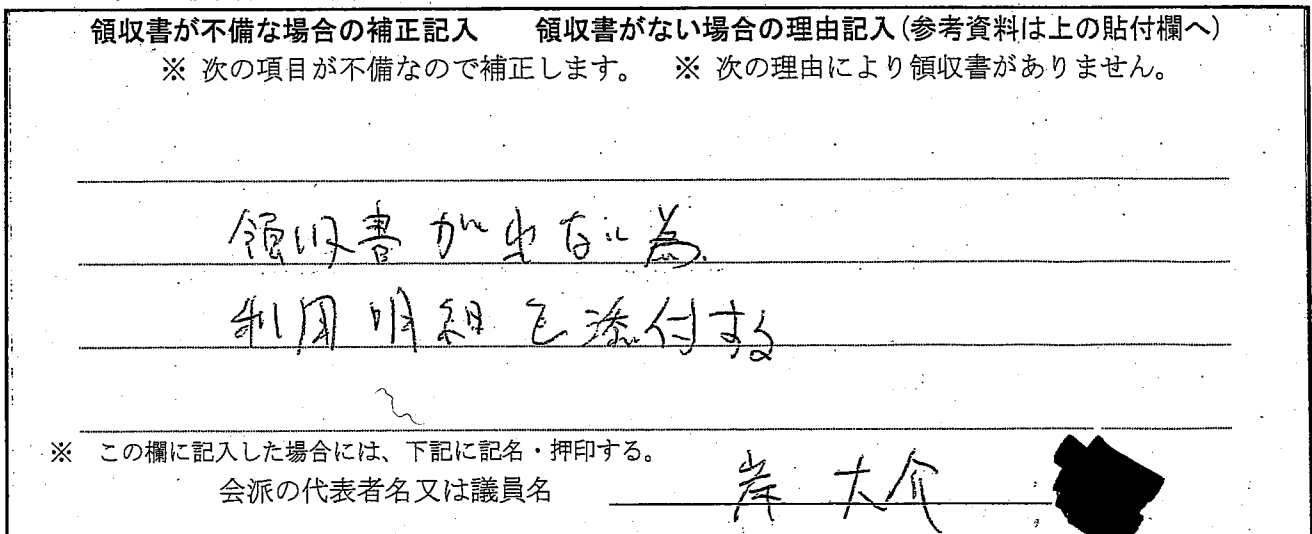 領収書が不備な場合の補正記入　　領収書がない場合の理由記入(参考資料は上の貼付欄へ)
※ 次の項目が不備なので補正します。　※ 次の理由により領収書がありません。
領収書が出ない為.
利用明細を添付する
※　この欄に記入した場合には、下記に記名・押印する。
会派の代表者名又は議員名　岸 大介